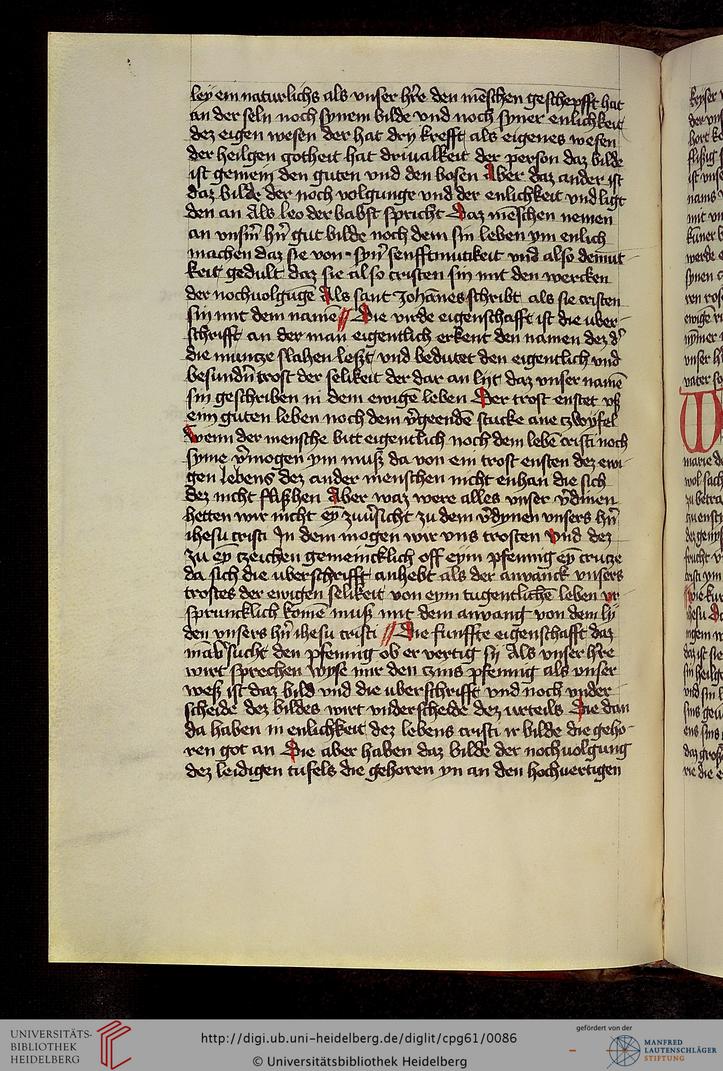 ley ein naturlichs als vnser hr̄e den mēschen geschepfft hat
an der seln noch synem bilde vnd noch syner enlichkeit
dez eigen wesen der hat dry krefft als eigenes wesen
der heilgen gotheit hat driualkeit der person daz bilde
ist gemein den guten vnd den bosen Aber daz ander ist
daz bilde der noch volgunge vnd der enlichkeit vnd ligt
den an Als leo der babst spricht Daz menschen nemen
an vnsm̄ hn̄ gut bilde noch dem sin leben ym enlich
machen daz sie von syn̄ senfftmutikeit vnd also demut
keit gedult daz sie also cristen sin mit den wercken
der nochuolgūge Als sant Johānes schribt als sie cristen
sin mit dem name Die virde eigenschafft ist die uber
schrifft an der man eigentlich erkent den namen dez d'
die muncze slahen leßt vnd bedutet den eigentlich vnd
besundn̄ trost der selikeit der dar an lyt daz vnser namē
sin geschriben in dem ewigē leben Der trost enstet vß
eim guten leben noch dem v'geendē stucke ane czwyfel
Wenn der mensche bitt eigentlich noch dem lebē cristi noch
syme v'mogen ym muß da von ein trost ensten dez ewi
gen lebens dez ander menschen nicht enhan die sich
dez nicht flißhen Aber waz were alles vnser v'dinen
hetten wir nicht ey zuu'sicht zu dem v'dynen vnsers hn̄
ihesu cristi In dem mogen wir vns trosten Vnd dez
zu ey czeichen gemeincklich off eym pfennig ey crucze
da sich die uberschrifft anhebt als der anuanck vnsers
trostes der ewigen selikeit von eym tugentlichē leben vr
sprunclich komē muß mit dem anvang von dem ly
den vnsers hn̄ ihesu cristi Die funffte eigenschafft daz
mā v'sucht den pfennig ob er vertig sy Als vnser hr̄e
wirt sprechen wyse mir den czins pfennig als vnser
weß ist daz bild vnd die uberschrifft vnd noch vnder
scheide dez bildes wirt vnderscheide dez vrteils Die dan
da haben in enlichkeit dez lebens cristi ir bilde die geho
ren got an Die aber haben daz bilde der nochuolgung
dez leidigen tufels die gehoren yn an den hochuertigen
UNIVERSITÄTS-
BIBLIOTHEK
HEIDELBERG
http://digi.ub.uni-heidelberg.de/diglit/cpg61/0086
© Universitätsbibliothek Heidelberg
gefördert von der
MANFRED
LAUTENSCHLÄGER
STIFTUNG